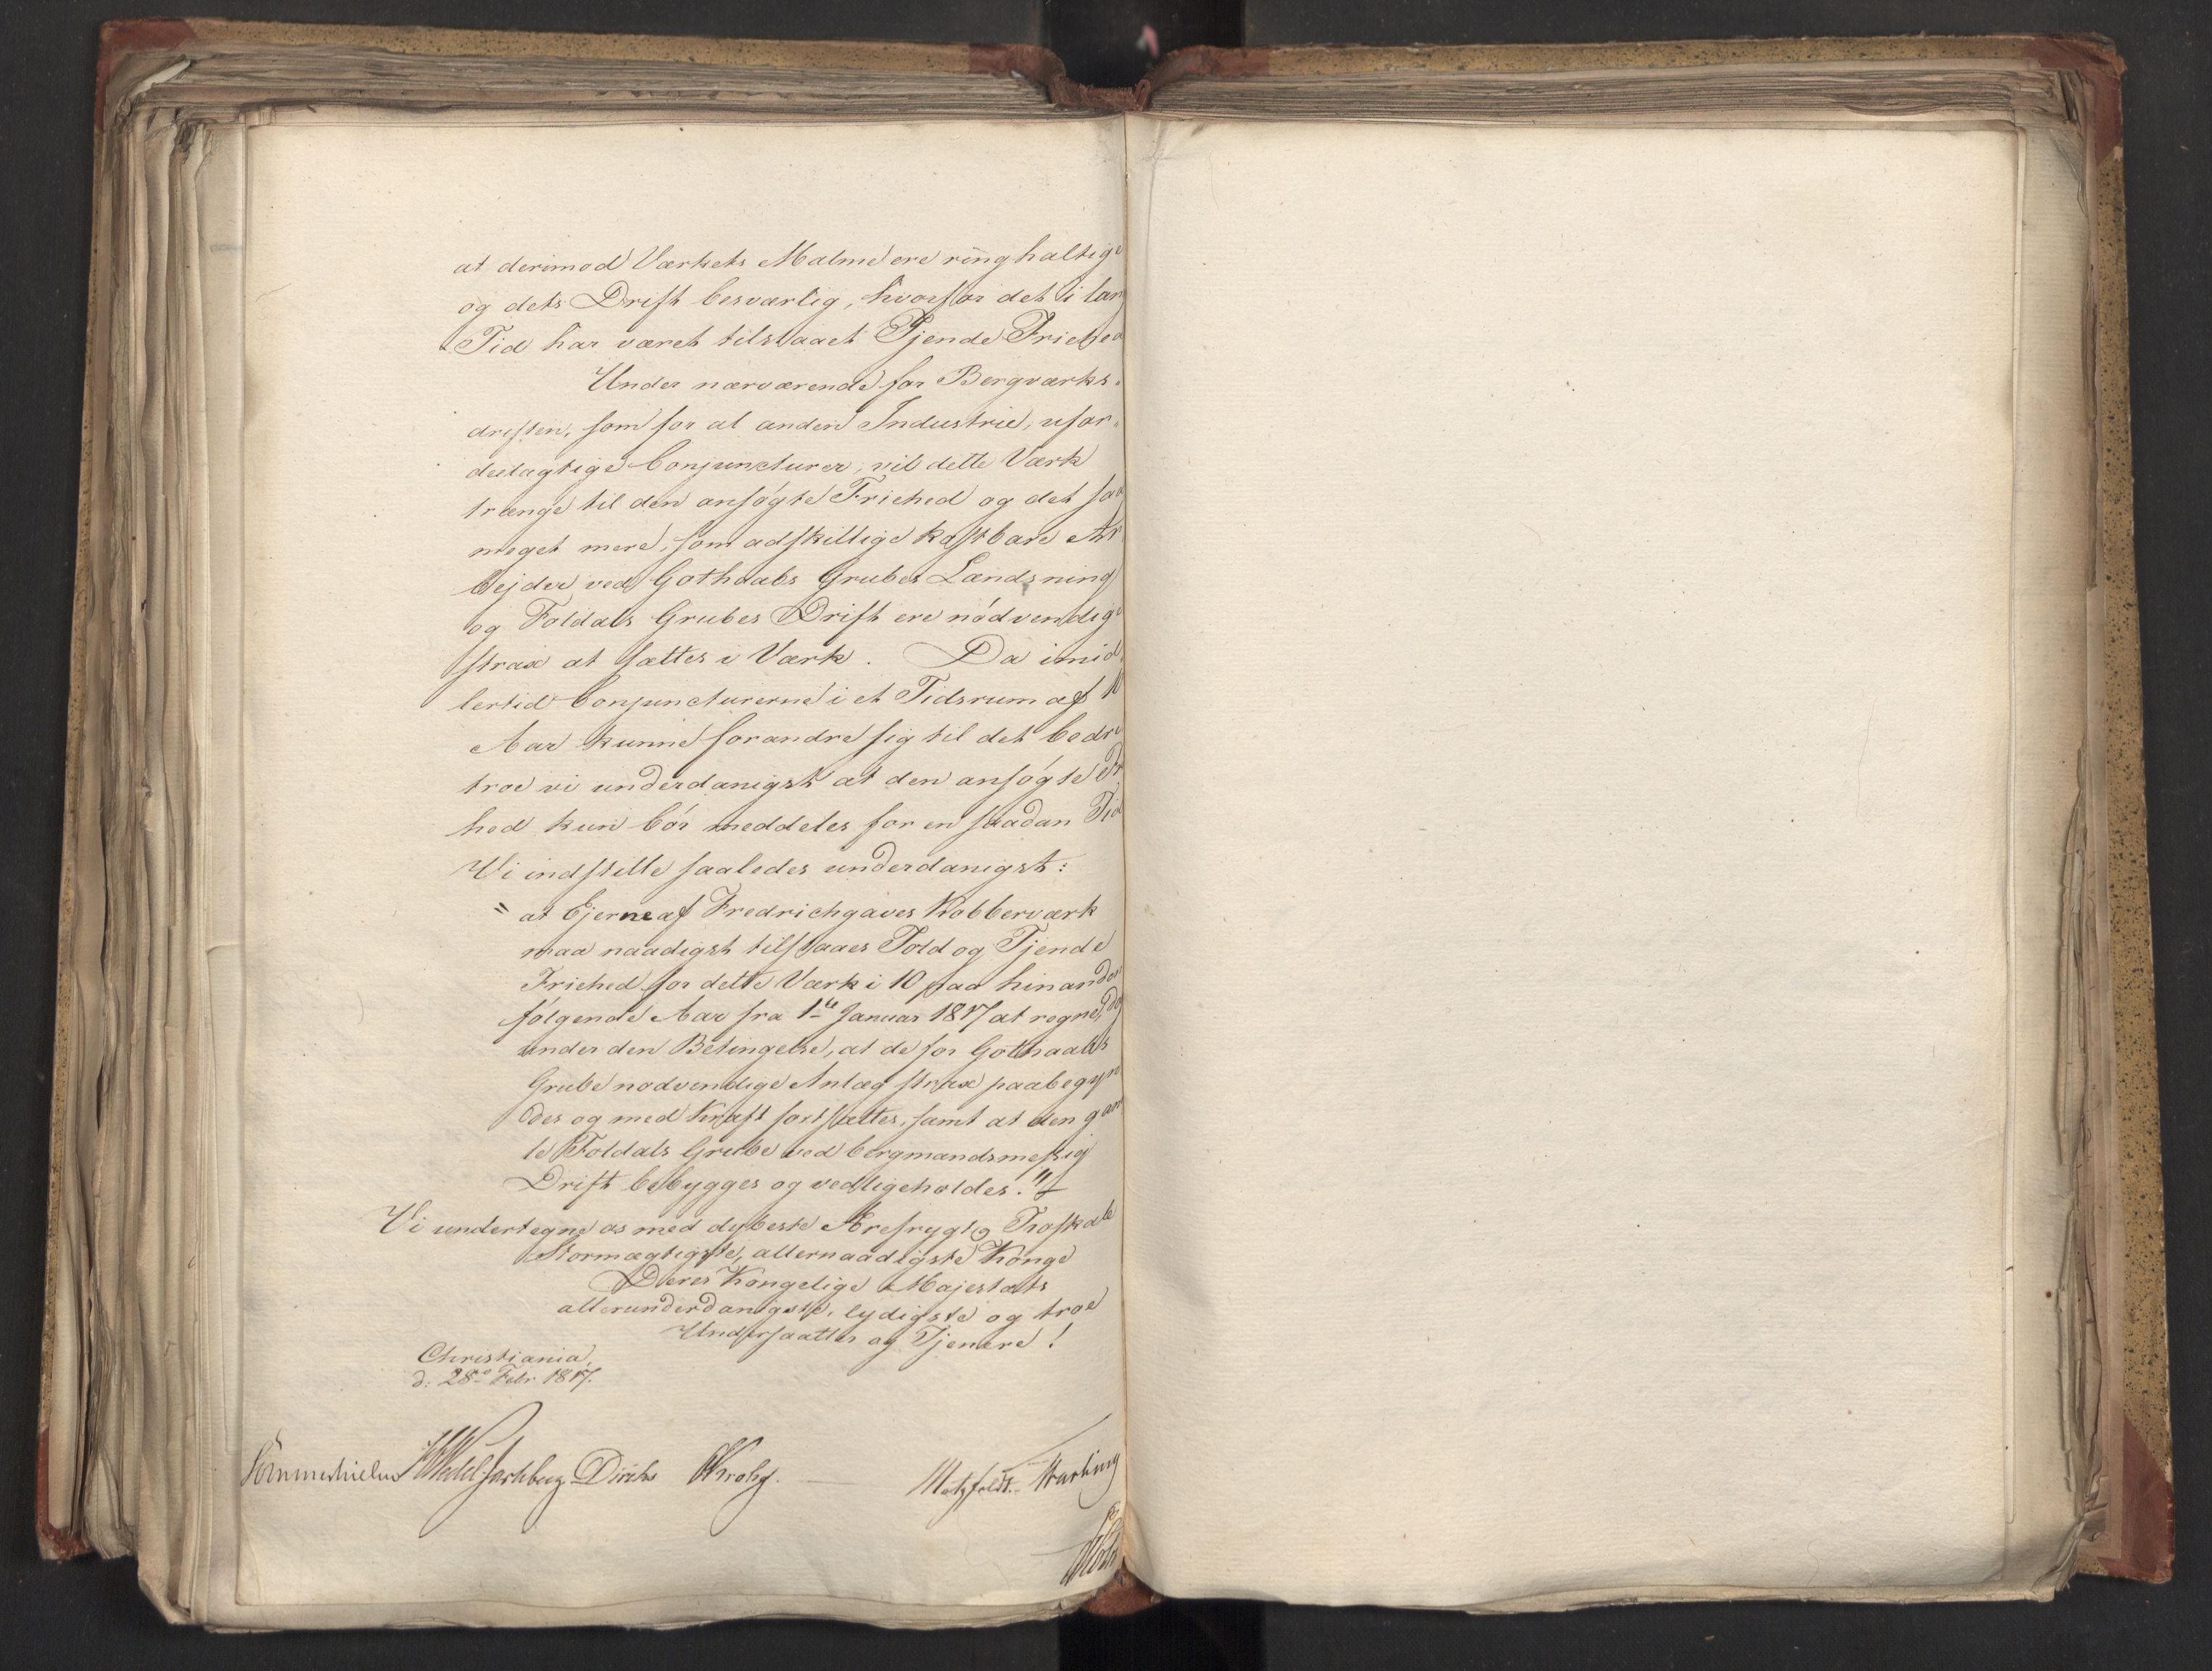 at derimod Værkets Malme ere ringhaltige
og dets Drift besværlig, hvorfor det i lan
Tid har været tilstaaet Tjende Friehed
Under nærværende for Bergværks-
driften, som for al anden Industrie, ufor-
deelagtige Conjuncturer, vil dette Værk
trænge til den ansøgte Friehed og det saa
meget mere, som adskillige kostbare Ar
bejder ved Gothaabs Grubes Lændsning
og Foldals Grubes Drift ere nødvendige
strax at sættes i Værk. Da imid
lertid Conjuncturerne i et Tidsrum af 10
Aar kunne forandre sig til det bedre
troe vi underdanigst at den ansøgte Fr
hed kun bør meddeles for en saadan Tid
Vi indstille saaledes underdanigst:
" at Ejerne af Fredrichgaves Kobberværk
maa naadigst tilstaaes Told og Tjende
Friehed for dette Værk i 10 paa hinanden
følgende Aar fra 1te Januar 1817 at regne, dog
under den Betingelse, at de for Gothaabs
Grube nødvendige Anlæg strax paabegyn
des og med Kraft fortsættes, samt at den gam
le Foldals Grube ved bergmandsmessig
Drift bebygges og vedligeholdes."
Vi undertegne os med dybeste Ærefrygt og Troskab
Stormægtigste, allernaadigste Konge
Deres Kongelige Majestæts
allerunderdanigste, lydigste og troe
Undersaatter og Tjenere!
Christiania,
d: 28de Febr 1817.
Sommerhielm HWedel Jarlsberg Diriks CKrohg. Motzfeldt.
Holst